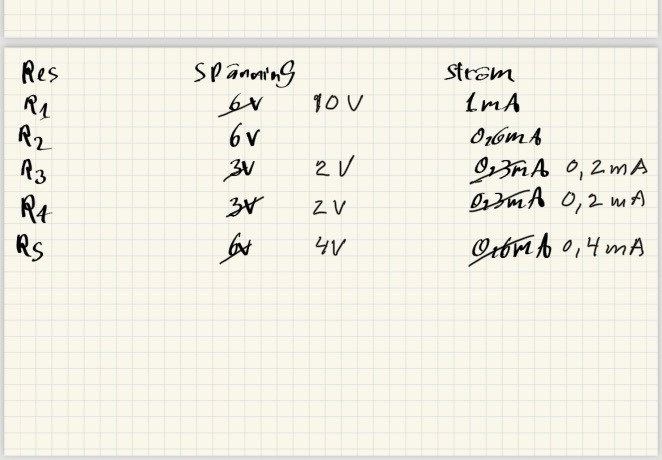 Res Spänning Ström
R1 6V 10V 1mA
R2 6V 0,6mA
R3 3V 2V 0,3mA 0,2mA
R4 3V 2V 0,3mA 0,2mA
R5 6V 4V 0,6mA 0,4mA